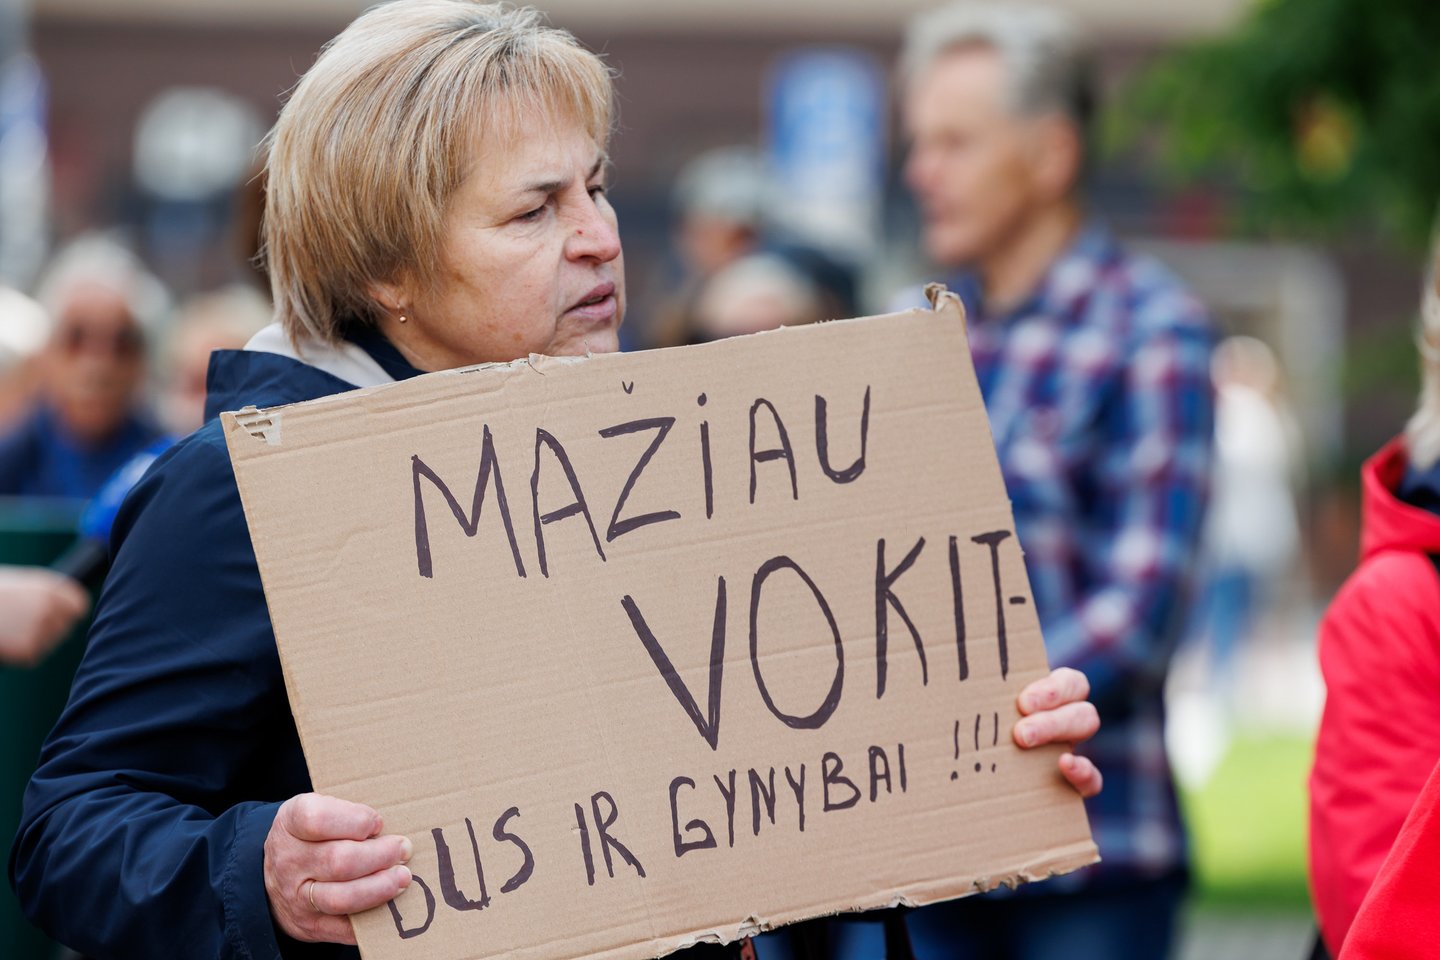 MAŽiAU
VOKIT-
DUS IR GYNYBAI !!!